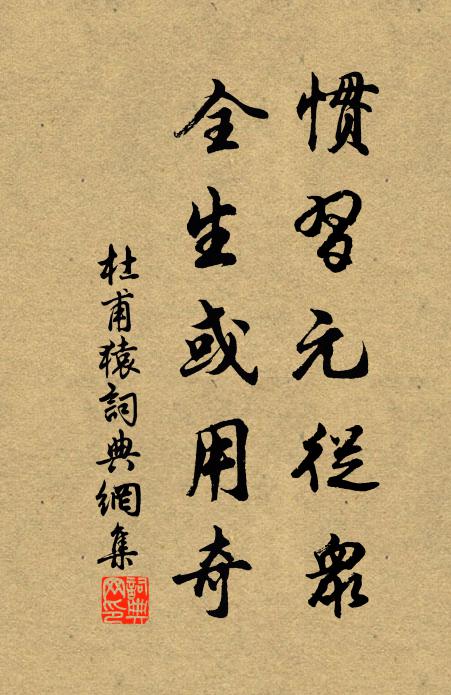 慣習元從衆
全生或用奇
杜甫猿詞典網集
詞典
网印